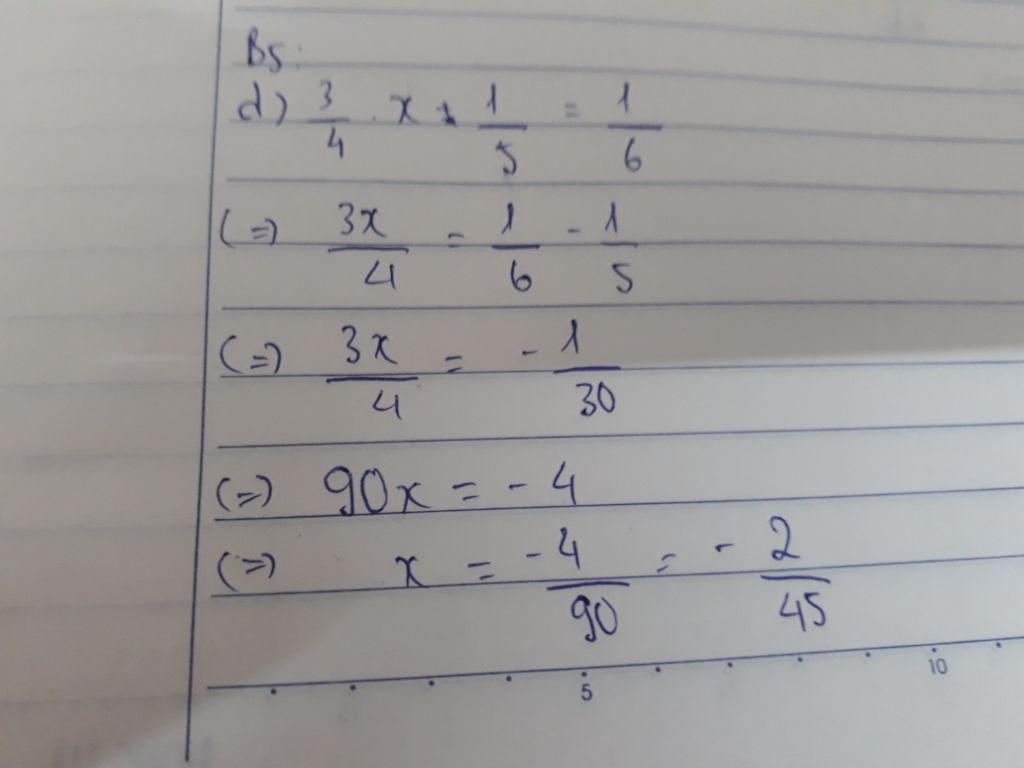 B5:
d) 3/4 . x + 1/5 = 1/6
(=) 3x/4 = 1/6 - 1/5
(=) 3x/4 = -1/30
(=) 90x = -4
(=) x = -4/90 = -2/45
5 10